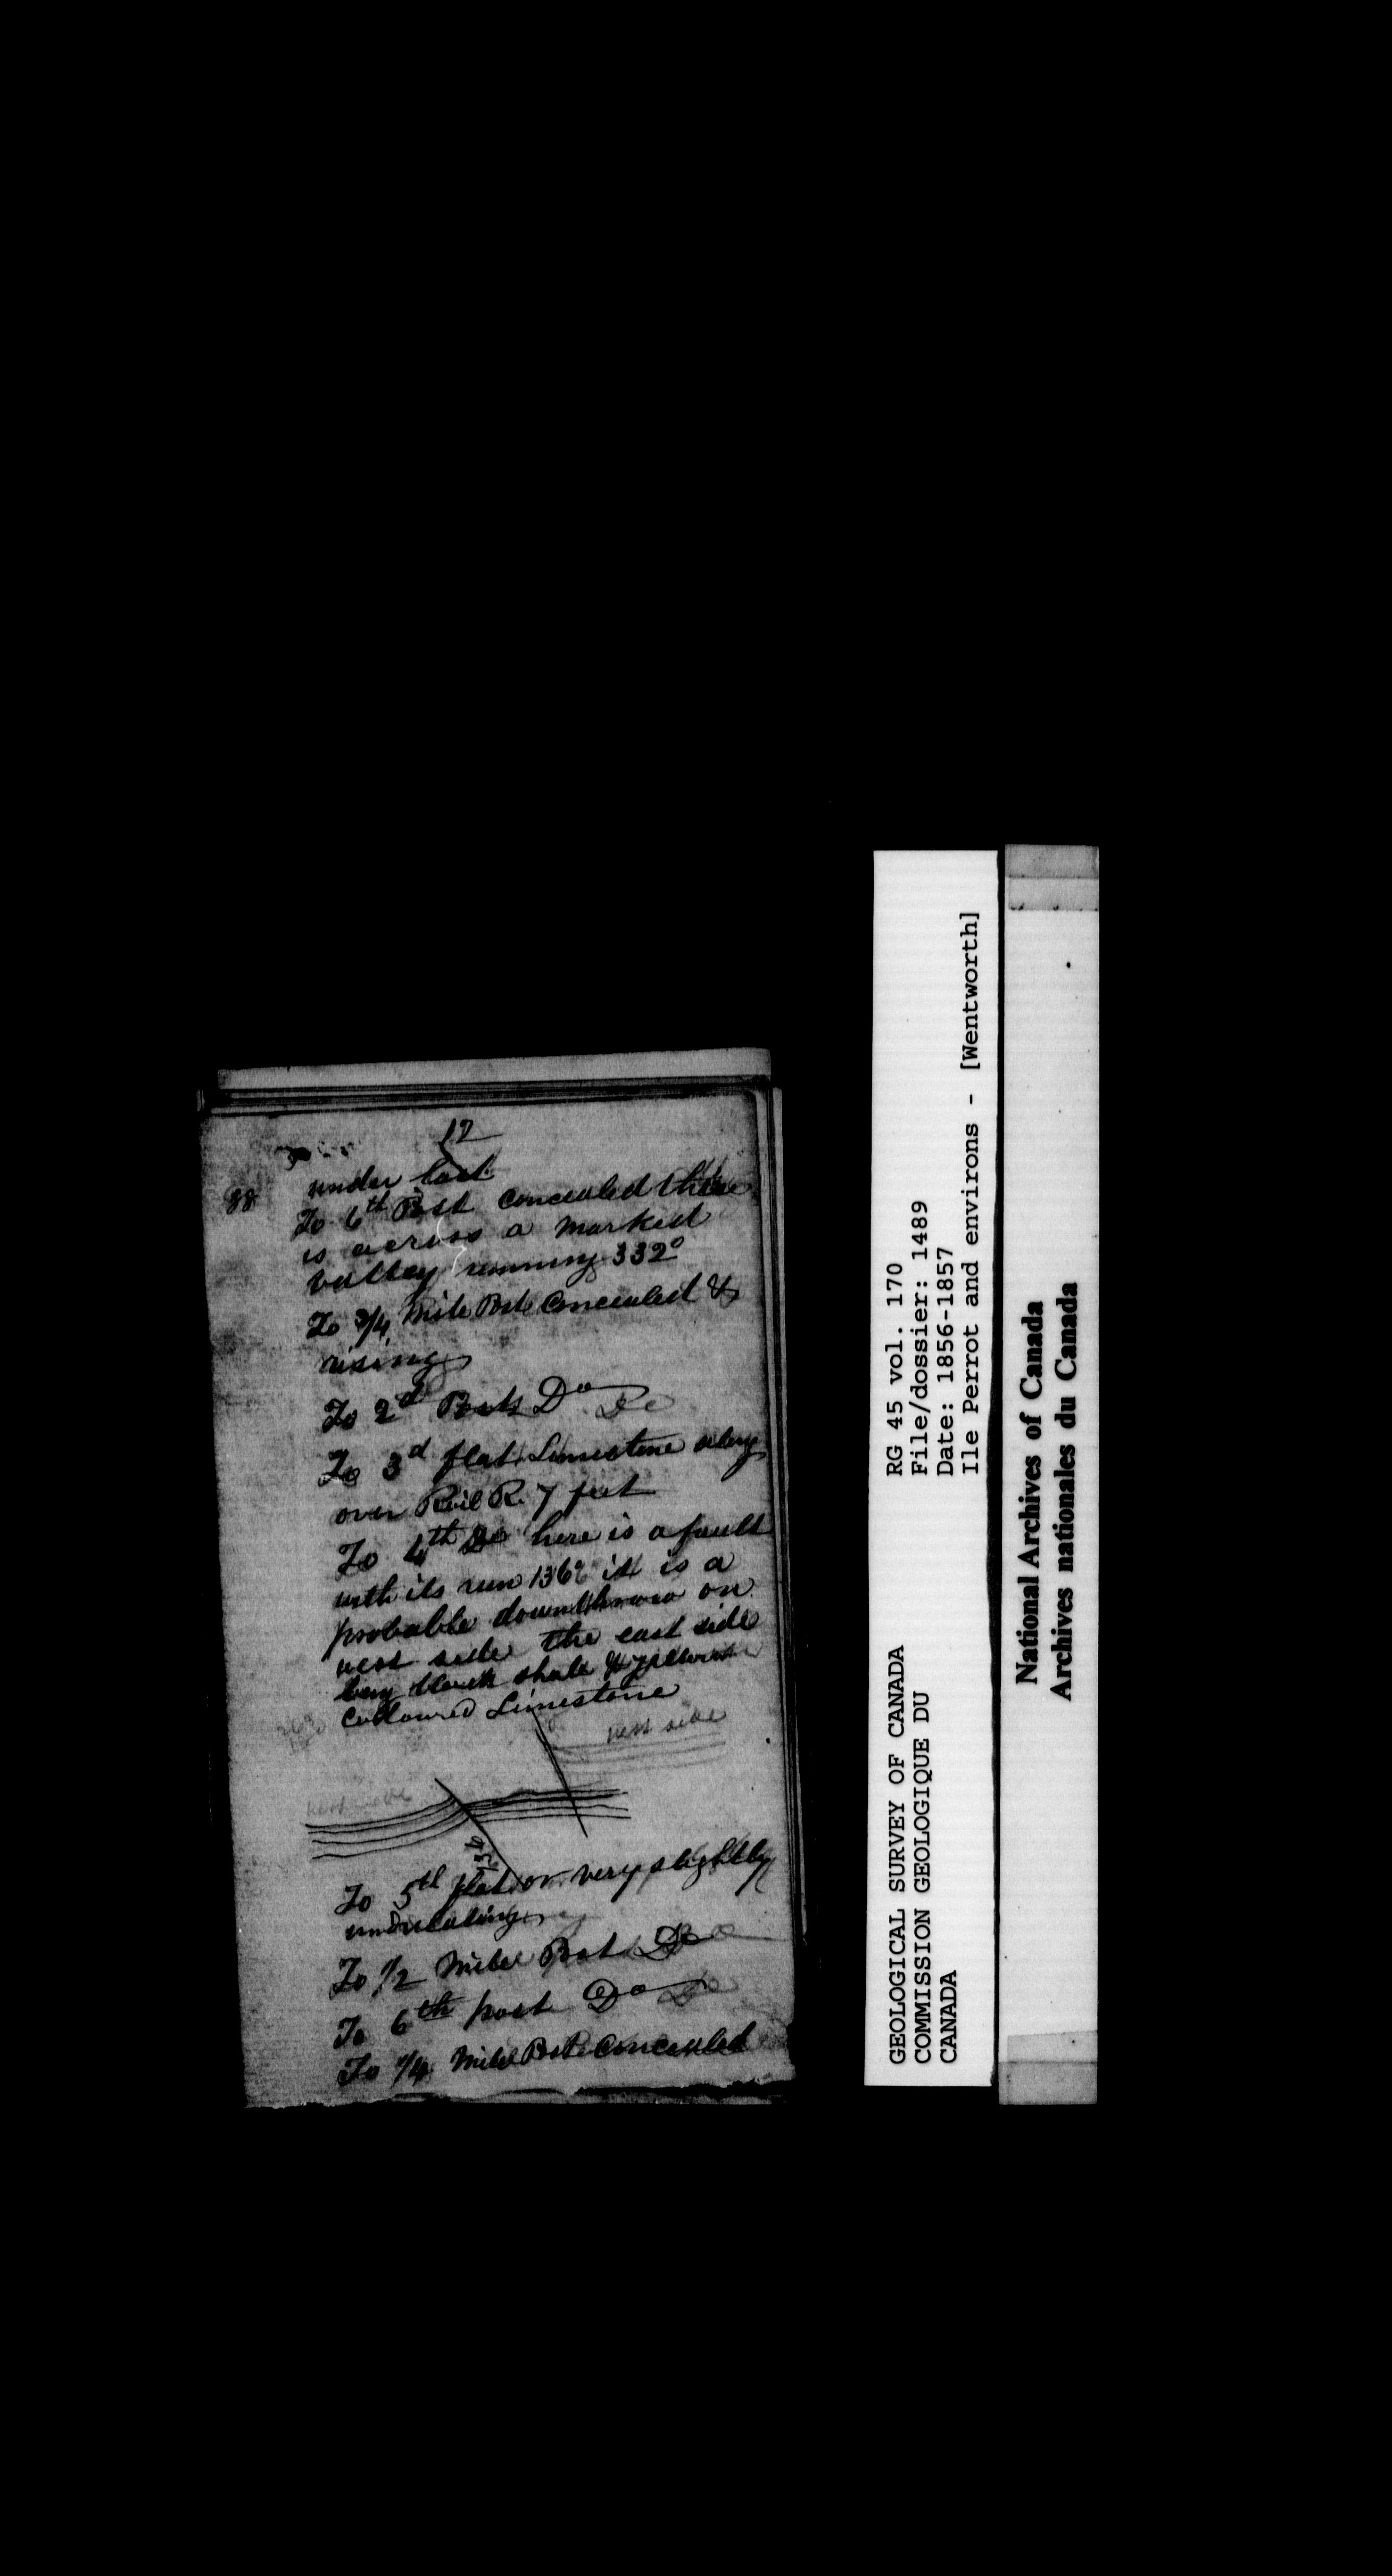 12
88
under last
To 6th Post concealed there
is across a marked
valley running 332°
To 3/4 Mile Post Concealed &
rising
To 2d Post Do
To 3d flat Limestone along
over Rail R. 7 feet
To 4th Do here is a fault
with its run 136° it is a
probable downthrow on
west side the east side
being black shale & yellowish
coloured Limestone
west side
136
To 5th flat or very slightly
undulating
To 1/2 Mile Post Do
To 6th post Do
To 1/4 Mile Post Concealed
GEOLOGICAL SURVEY OF CANADA
COMMISSION GEOLOGIQUE DU
CANADA
RG 45 vol. 170
File/dossier: 1489
Date: 1856-1857
Ile Perrot and environs - [Wentworth]
National Archives of Canada
Archives nationales du Canada